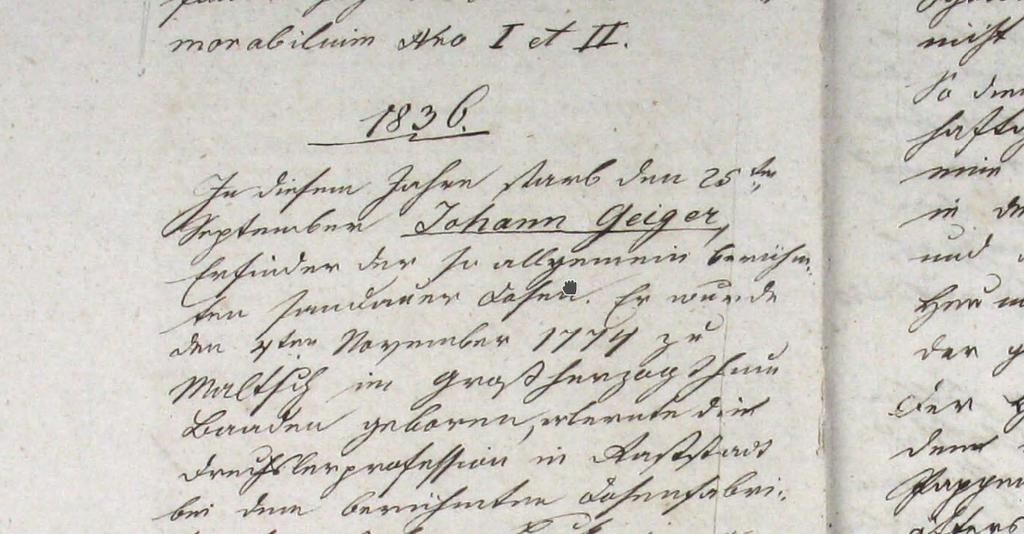 morabilium Nro I et II.
1836.
In diesem Jahre starb den 25ten
September Johann Geiger,
Erfinder der so allgemein berühm-
ten Sandauer Dosen. Er wurde
den 7ten November 1774 zu
Maltsch im Großherzogthum
Baaden geboren, erlernte die
Drechslerprofession in Raststadt
bei dem berühmten Dosenfabri-
nicht
So
haft
eine
in
und
der
Der
dem
öfters